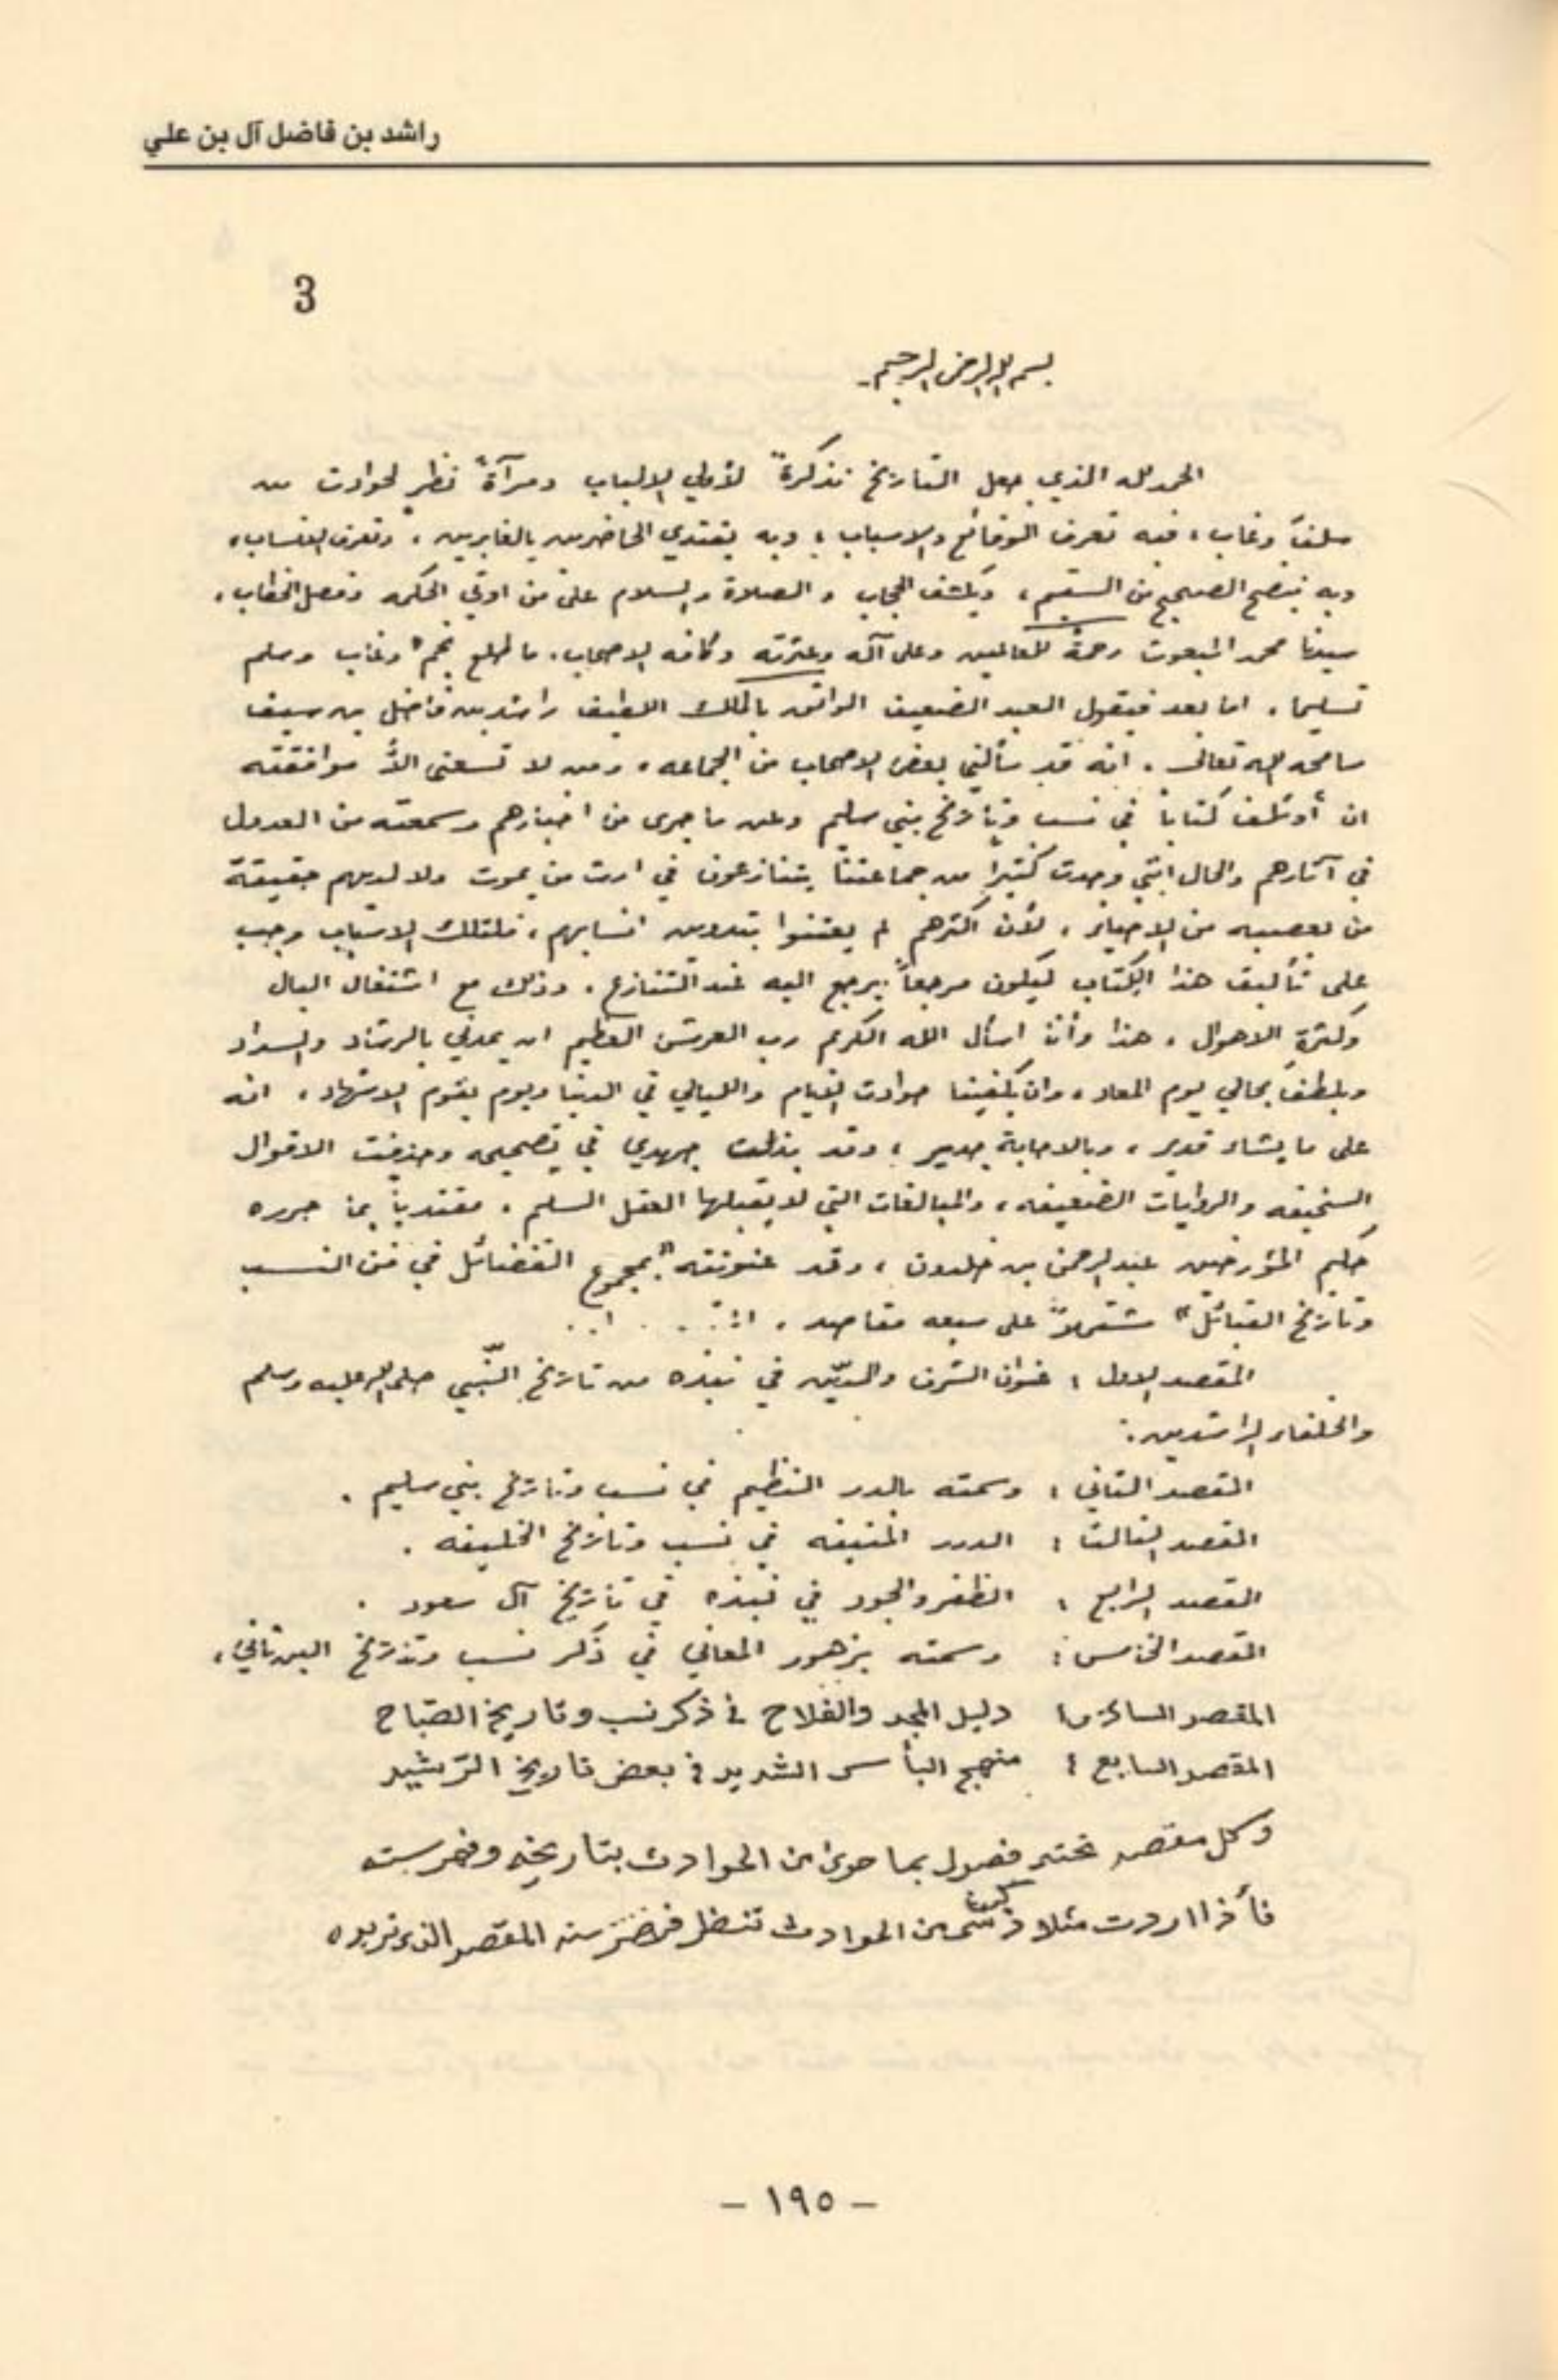 راشد بن فاضل آل بن علي
3
بسم الله الرحمن الرحيم
الحمد لله الذي جعل التاريخ تذكرةً لأولي الالباب ومرآةً نظر لحوادث من
سلف وغاب، فبه تعرف الوقائع والاسباب، وبه يقتدي الحاضرين بالغابرين، وتعرف الانساب،
وبه يتضح الصحيح من السقيم، ويكشف الحجاب والصلاة والسلام على من اوتي الحكمه وفصل الخطاب،
سيدنا محمد المبعوث رحمة للعالمين وعلى آله وعترته وكافه الاصحاب، ما طلع نجم وغاب وسلم
تسليما. اما بعد فيقول العبد الضعيف الواثق بالملك اللطيف راشد بن فاضل بن سيف
سامحه الله تعالى. انه قد سألني بعض الاصحاب من الجماعه، ومن لا تسعني الاّ موافقته
ان أوئلف كتاباً في نسب وتأريخ بني سليم وعن ما جرى من اخبارهم وسمعته من العدول
في آثارهم والحال انني وجدت كثيراً من جماعتنا يتنازعون في ارث من يموت ولا لديهم حقيقة
من يعصبه من الاخيار، لأن اكثرهم لم يعتنوا بتدوين انسابهم، فلتلك الاسباب وجب
على تأليف هذا الكتاب ليكون مرجعاً يرجع اليه عند التنازع. وذلك مع اشتغال البال
وكثرة الاحوال، هذا وأنا اسأل الله الكريم رب العرش العظيم ان يمدني بالرشاد والسداد
ويلطف بحالي يوم المعاد، وان يكفينا حوادث الايام والليالي في الدنيا ويوم يقوم الاشهاد، انه
على ما يشاء قدير، وبالاجابة جدير، وقد بذلت جهدي في تصحيحه وحذفت الاقوال
السخيفه والروايات الضعيفه، والمبالغات التي لا يقبلها العقل السليم. مقتدياً بما حرره
حكيم المؤرخين عبدالرحمن بن خلدون، وقد عنونته "بمجموع الفضائل في فن النسب
وتاريخ القبائل" مشتملاً على سبعه مقاصد.
المقصد الاول: عنوان الشرف والدّين في نبذه من تاريخ النّبي صلى الله عليه وسلم
والخلفاء الراشدين:
المقصد الثاني: وسمته بالدر النظيم في نسب وتاريخ بني سليم.
المقصد الثالث: الدرر المنيفه في نسب وتاريخ الخليفه.
المقصد الرابع: الظفر والجود في نبذه في تأريخ آل سعود.
المقصد الخامس: وسمته بزهور المعاني في ذكر نسب وتاريخ البن ثاني،
المقصد السادس: دليل المجد والفلاح في ذكر نسب وتاريخ الصّباح
المقصد السابع: منهج البأس الشديد في بعض تاريخ الرّشيد
وكل مقصد تحته فصول بما حوى من الحوادث بتاريخه وفهرسته
فأذا اردت مثلا ذكر شي من الحوادث تنظر فهرسته المقصد الذي تريده
- ١٩٥ -